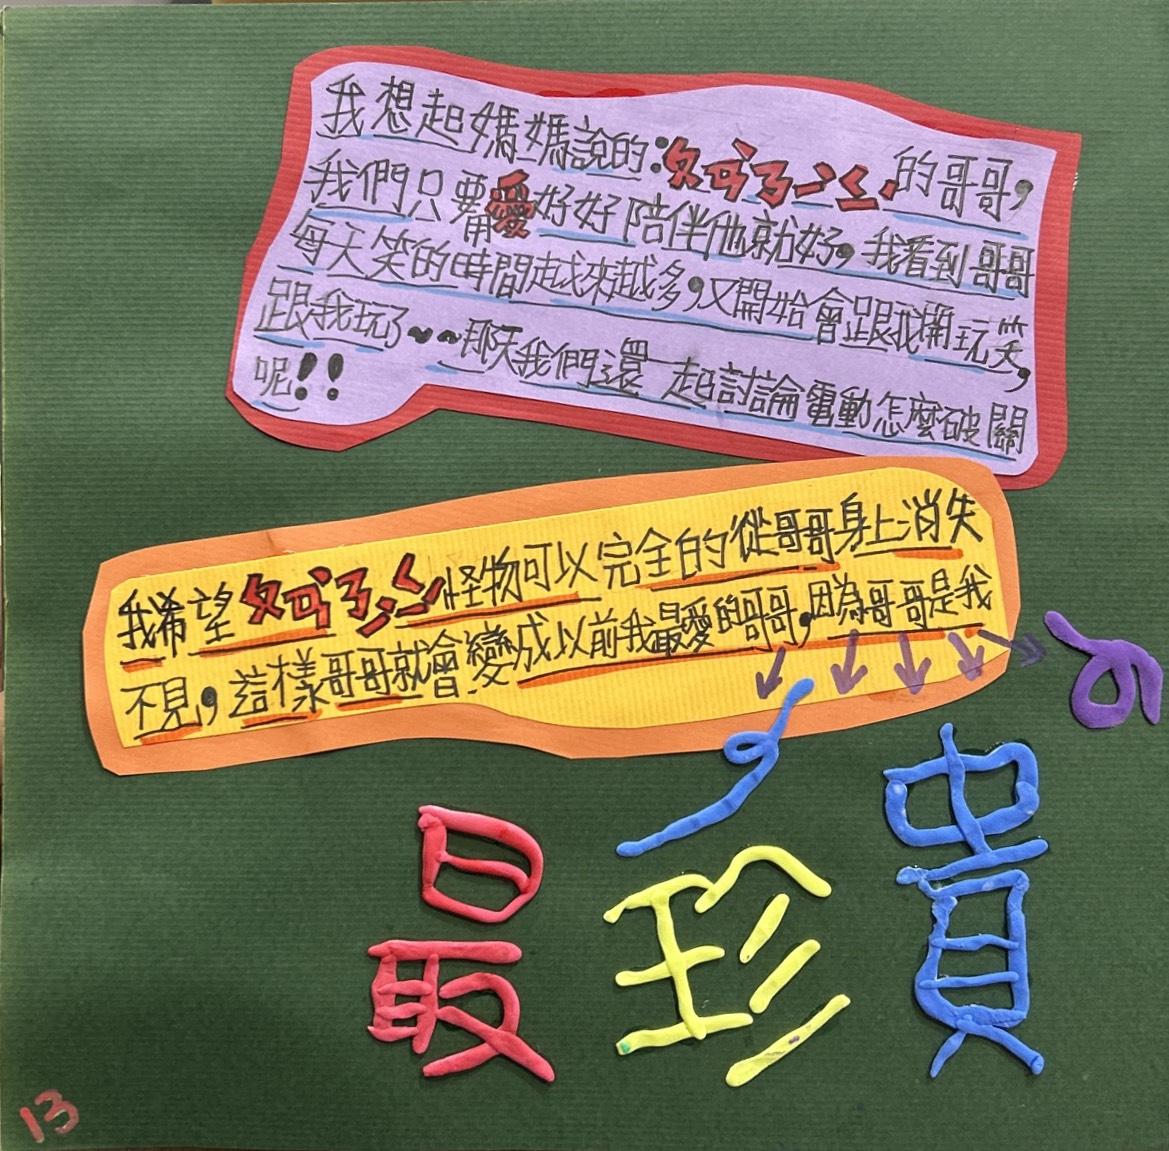 我想起媽媽說的:的哥哥,
我們只要用愛好好陪伴他就好,我看到哥哥
每天笑的時間越來越多,又開始會跟我開玩笑,
跟我玩了~~那天我們還一起討論電動怎麼破關
呢!!
我希望怪物可以完全的從哥哥身上消失
不見,這樣哥哥就會變成以前我最愛的哥哥,因為哥哥是我
最珍貴
13